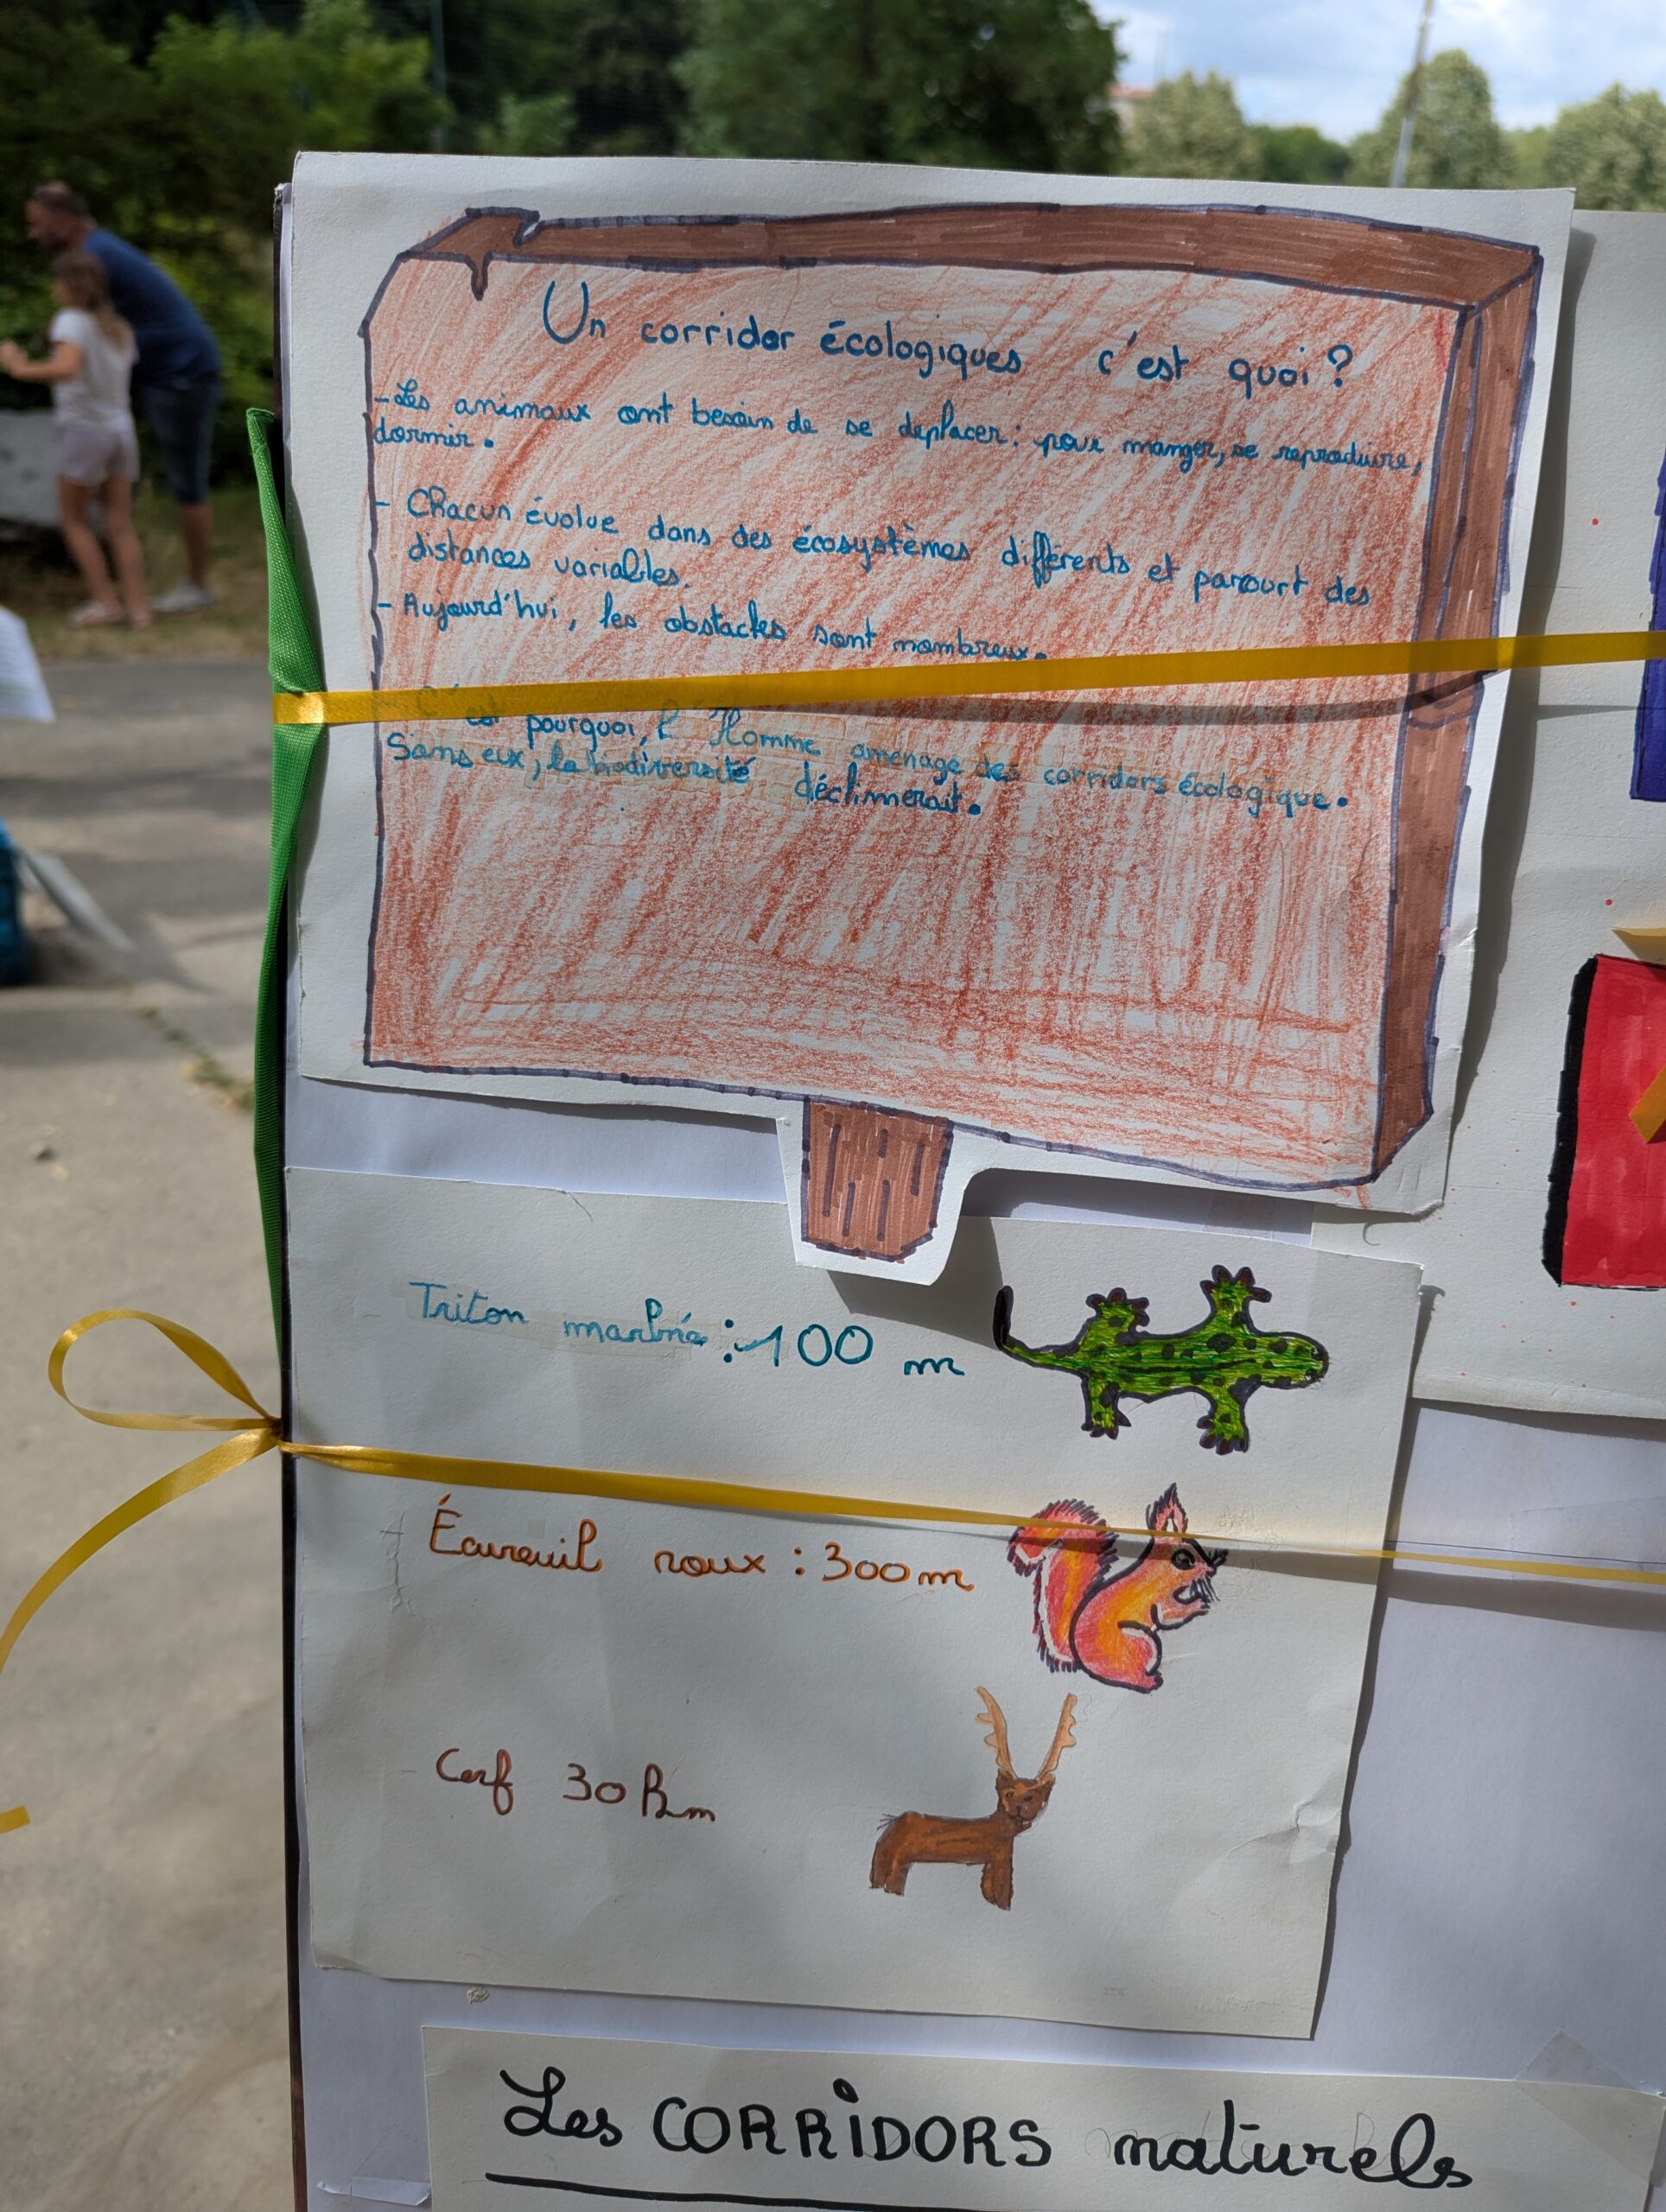 Un corridor écologiques c'est quoi ?
- Les animaux ont besoin de se deplacer : pour manger, se reproduire,
dormir.
- Chacun évolue dans des écosystèmes différents et parcourt des
distances variables.
- Aujourd'hui, les obstacles sont nombreux.
C'est pourquoi, l'Homme aménage des corridors écologique.
Sans eux, la biodiversité déclinnerait.
Triton marbré : 100 m
Écureuil roux : 300 m
Cerf 30 Km
Les CORRIDORS naturels